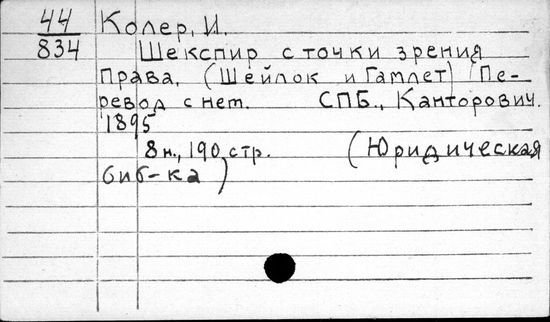 44 Колер, И.
834 Шекспир с точки зрения
права. (Шейлок и Гамлет) Пе-
ревод с нем. СПБ., Канторович.
1895
8н., 190 стр. (Юридическая
биб-ка)